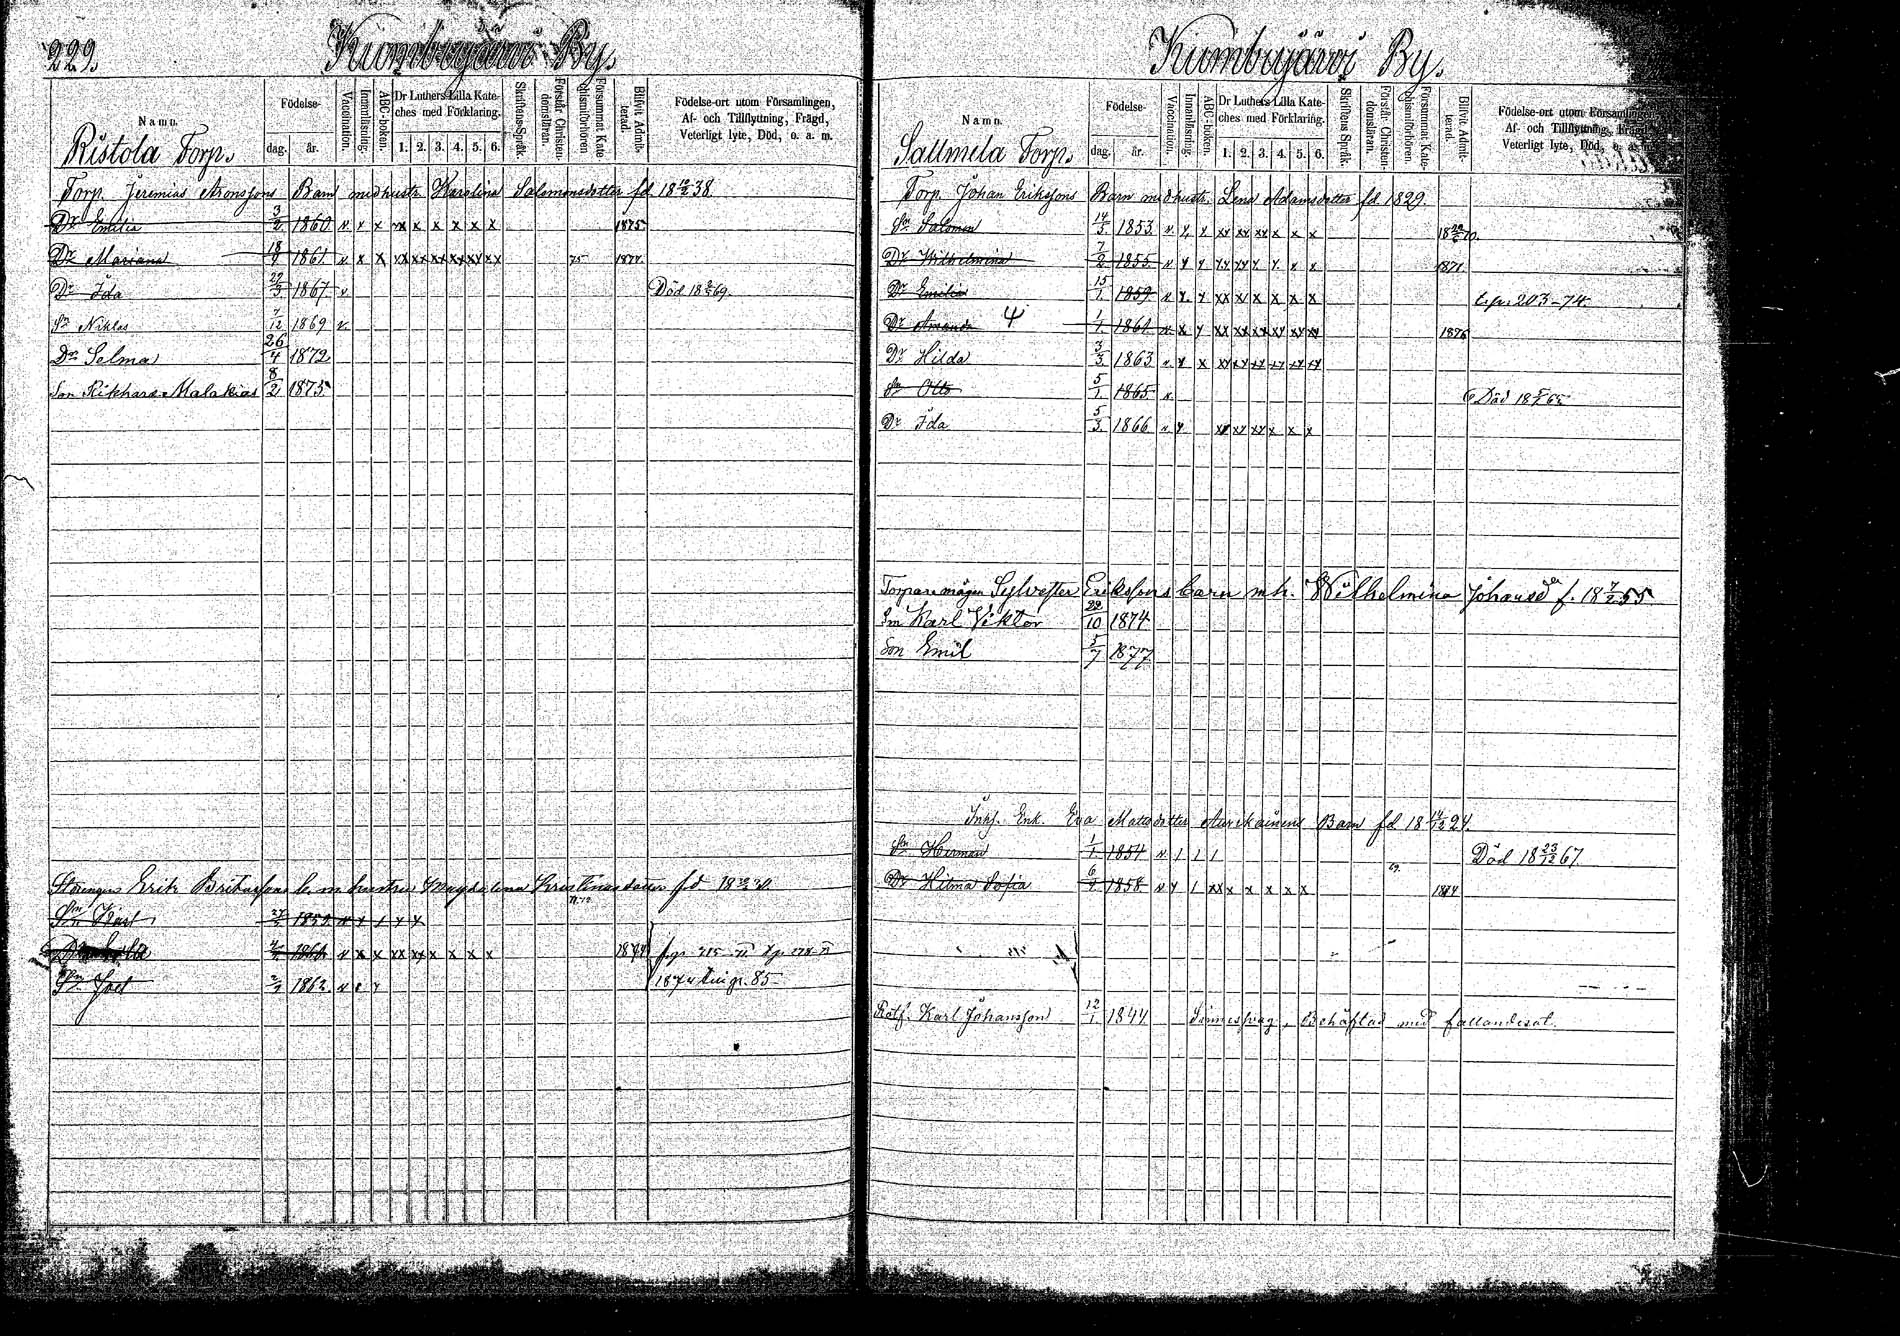 229.
Kumbujärvi By.
Namn.
Födelse-
dag.
år.
Vaccination.
Innanläsning.
ABC-boken.
Dr Luthers Lilla Kate-
ches med Förklaring.
1. 2. 3. 4. 5. 6.
Skriftens Språk.
Förstår Christen-
domsläran.
Försummat Kate-
chismiförhören.
Blifvit Admit-
terad.
Födelse-ort utom Församlingen,
Af- och Tillflyttning, Frägd,
Veterligt lyte, Död, o. a. m.
Ristola Torp.
Torp. Jeremias Aronssons Barn med hustr. Karolina Salomonsdotter fd. 18 38.
Dr Emilia 3/2 1860 v x x xx x x x x x 1875
Dr Mariana 18/9 1861 v x x xx xx xx xx xx xx 75 1877.
Dr Ida 22/3 1867 v Död 18 69.
Sn Niklas 7/12 1869 v.
Dr Selma 26/4 1872
Son Rikhard Malakias 8/2 1875
Erik m hustru Magdalena Kristinasdotter fd 18
Sn Karl 1859 v x / x x
v x x xx xx x x x x 1874
1874 85
Sn Joel 2/9 1862. v
Kumbujärvi By.
Namn.
Födelse-
dag.
år.
Vaccination.
Innanläsning.
ABC-boken.
Dr Luthers Lilla Kate-
ches med Förklaring.
1. 2. 3. 4. 5. 6.
Skriftens Språk.
Förstår Christen-
domsläran.
Försummat Kate-
chismiförhören.
Blifvit Admit-
terad.
Födelse-ort utom Församlingen,
Af- och Tillflyttning, Frägd,
Veterligt lyte, Död, o. a. m.
Sallmela Torp.
Torp. Johan Erikssons Barn med hustr. Lena Adamsdotter fd 1829.
Sn Salomon 14/5 1853 v x x xx xx xx x x x 18 70.
Dr Wilhelmina 7/2 1855 v x x xx xx x x. x x 1871.
Dr Emilia 15/1 1859 v x. x xx x x x x x 203-74
Dr Amanda 1/1 1861 v x x xx xx xx xx xx xx 1876
Dr Hilda 3/3 1863 v x x xx xx xx xx xx xx
Sn Otto 5/1 1865 v. Död 18 65
Dr Ida 5/3 1866 v x xx xx xx x x x
Torparemågen Sylvester Erikssons barn m h. Wilhelmina Johansdr f. 18 7/2 55
Sn Karl Viktor 22/10 1874
Son Emil 5/7 1877
Inhs. Enk. Eva Matsdotter Barn fd. 18 14/12 24.
Sn Herman 1/1 1854 v 1 1 1 Död 18 23/12 67.
Dr Hilma Sofia 1858 v x 1 xx x x x x x 69. 1874
Karl Johansson 12/1 1844 Sinnessvag, Behäftad med fallandesot.